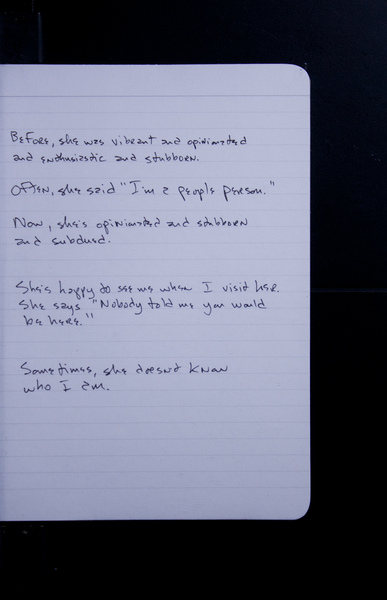 Before, she was vibrant and opinionated
and enthusiastic and stubborn.
Often, she said "I'm a people person."
Now, she's opinionated and stubborn
and subdued.
She's happy to see me when I visit her.
She says "Nobody told me you would
be here."
Sometimes, she doesn't know
who I am.